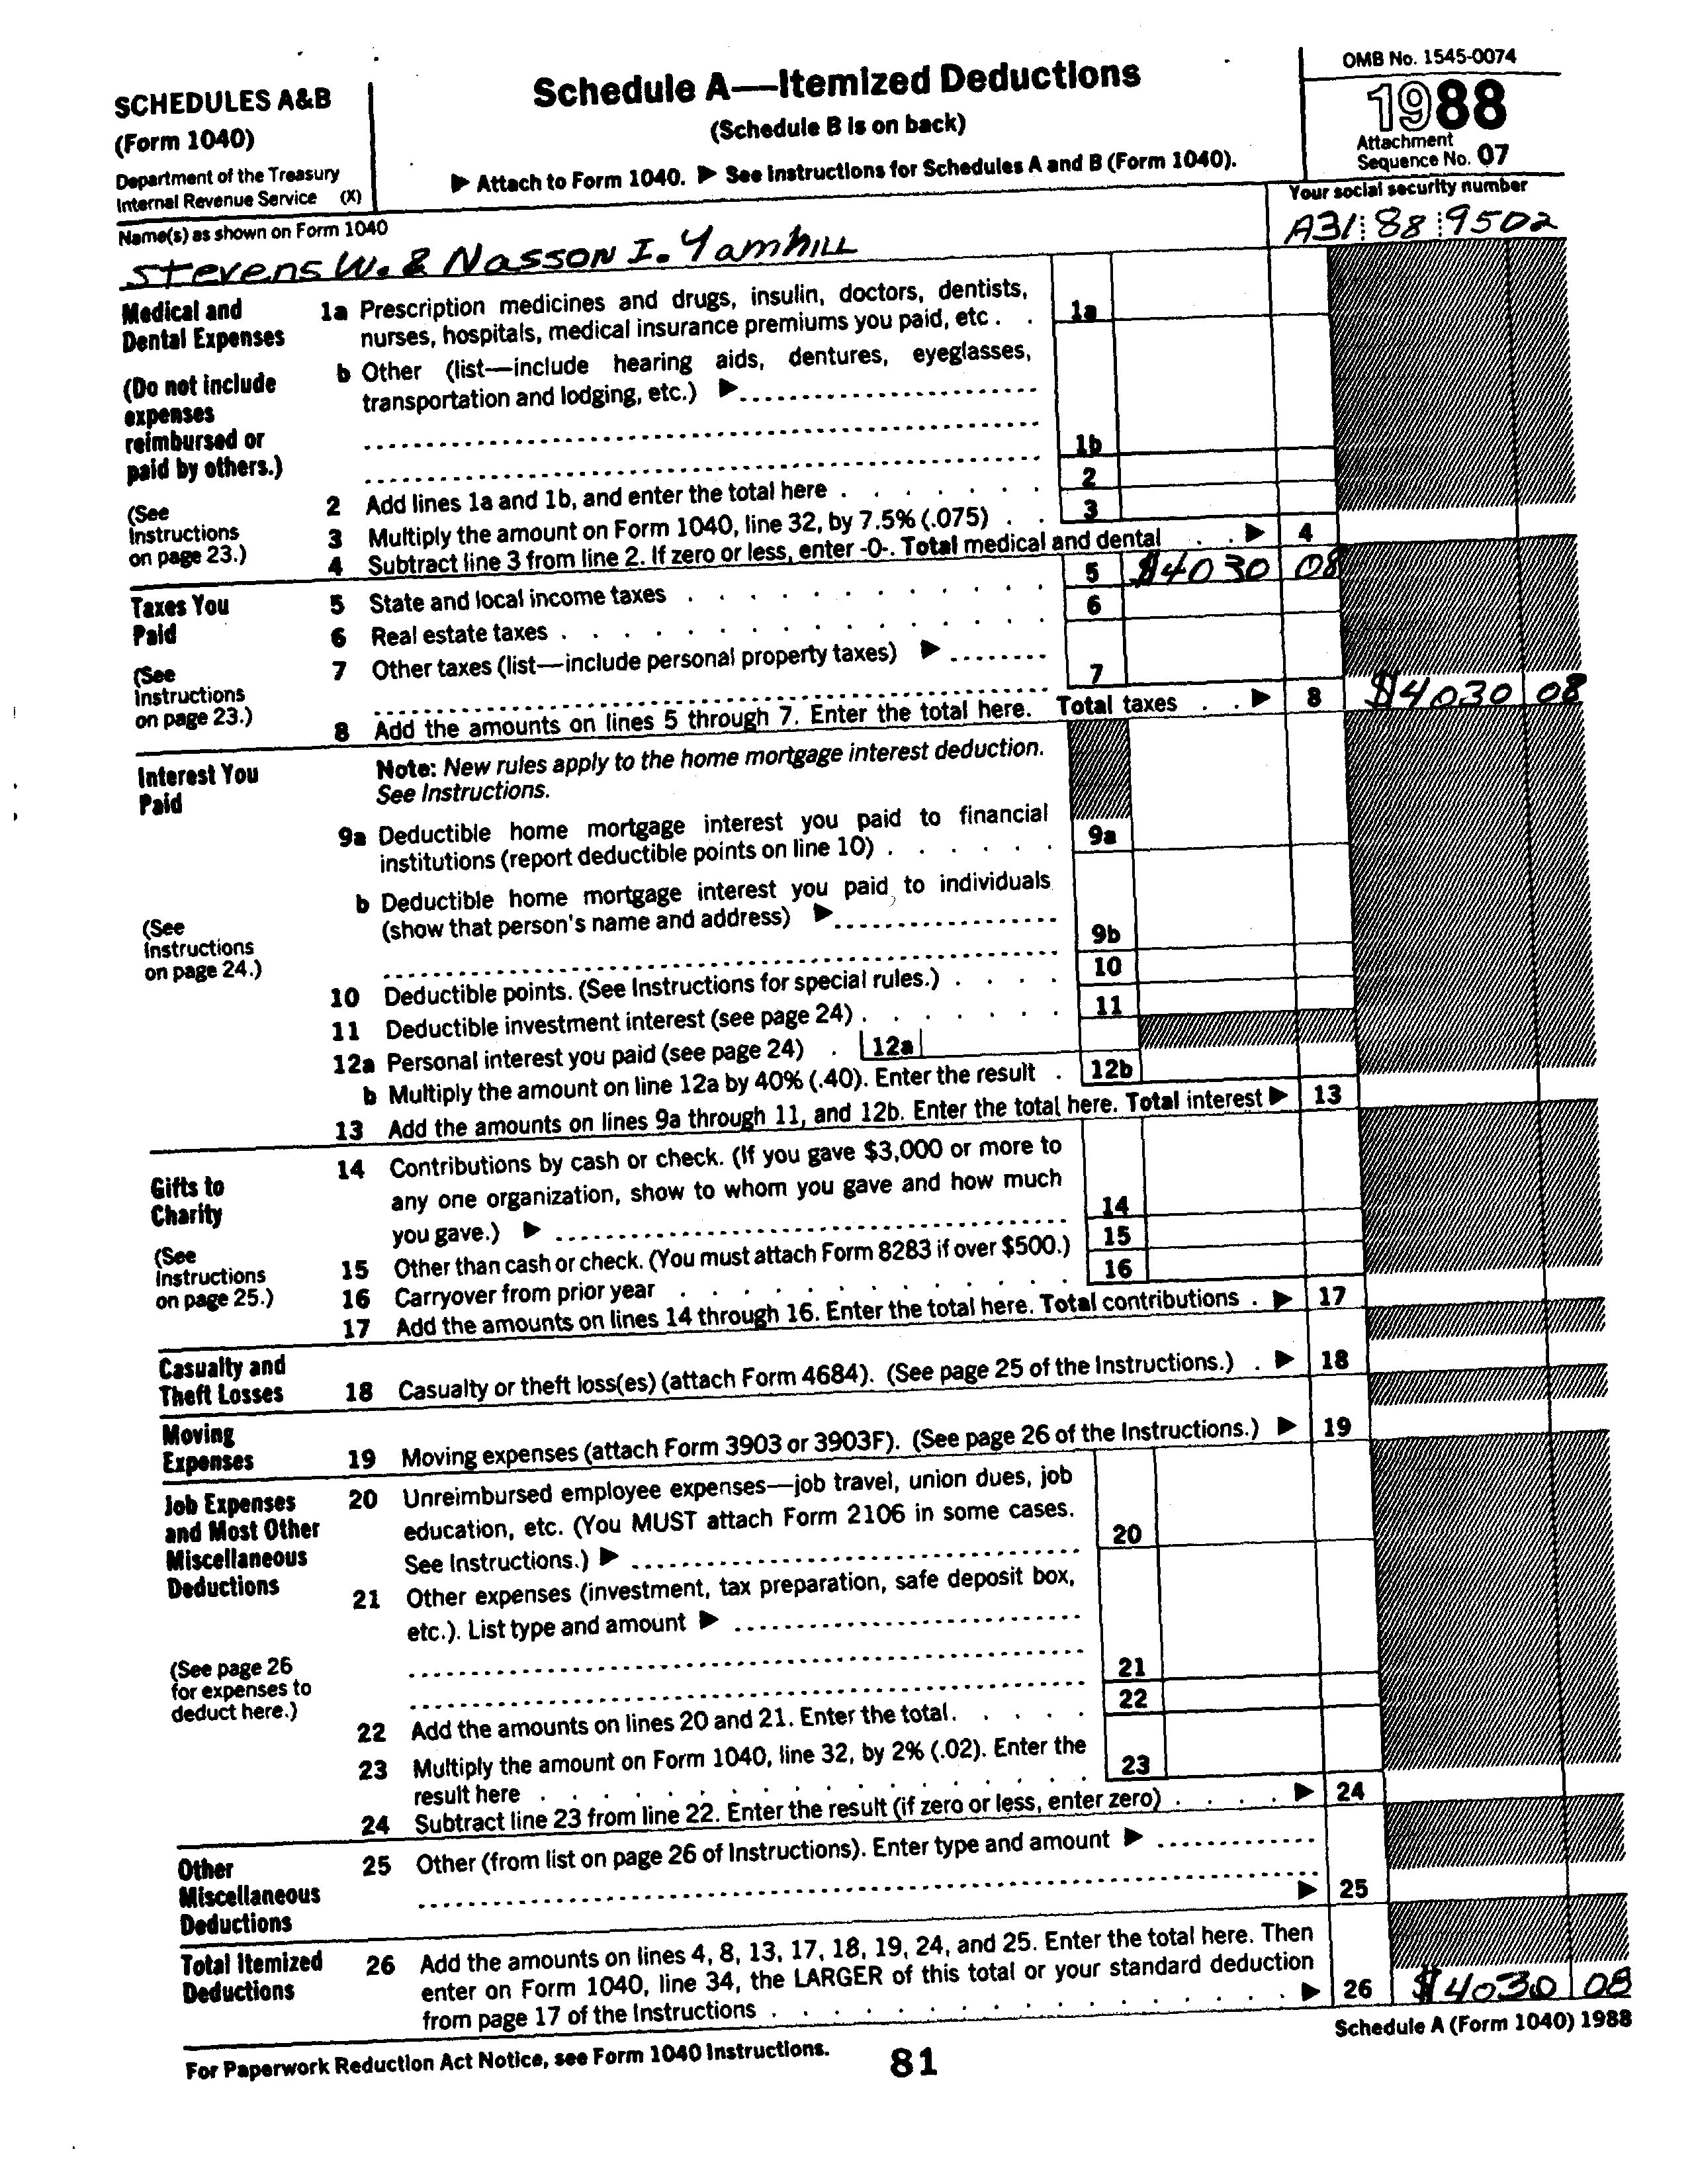 SCHEDULES A&B
(Form 1040)
Department of the Treasury
Internal Revenue Service (X)
Schedule A—Itemized Deductions
(Schedule B is on back)
▶ Attach to Form 1040. ▶ See Instructions for Schedules A and B (Form 1040).
OMB No. 1545-0074
1988
Attachment
Sequence No. 07
Name(s) as shown on Form 1040
Stevens W. & Nasson I. Yamhill
Your social security number
A31 88 9502
Medical and
Dental Expenses
(Do not include
expenses
reimbursed or
paid by others.)
(See
Instructions
on page 23.)
1a Prescription medicines and drugs, insulin, doctors, dentists,
nurses, hospitals, medical insurance premiums you paid, etc . . 1a
b Other (list—include hearing aids, dentures, eyeglasses,
transportation and lodging, etc.) ▶
1b
2 Add lines 1a and 1b, and enter the total here . . . . . . . 2
3 Multiply the amount on Form 1040, line 32, by 7.5% (.075) . . 3
4 Subtract line 3 from line 2. If zero or less, enter -0-. Total medical and dental . . ▶ 4
Taxes You
Paid
(See
Instructions
on page 23.)
5 State and local income taxes . . . . . . . . . . . 5 $4030 08
6 Real estate taxes . . . . . . . . . . . . . . . 6
7 Other taxes (list—include personal property taxes) ▶
7
8 Add the amounts on lines 5 through 7. Enter the total here. Total taxes . . ▶ 8 $4030 08
Interest You
Paid
(See
Instructions
on page 24.)
Note: New rules apply to the home mortgage interest deduction.
See Instructions.
9a Deductible home mortgage interest you paid to financial
institutions (report deductible points on line 10) . . . . . . 9a
b Deductible home mortgage interest you paid to individuals
(show that person's name and address) ▶
9b
10 Deductible points. (See Instructions for special rules.) . . . . 10
11 Deductible investment interest (see page 24) . . . . . . . 11
12a Personal interest you paid (see page 24) . 12a
b Multiply the amount on line 12a by 40% (.40). Enter the result . 12b
13 Add the amounts on lines 9a through 11, and 12b. Enter the total here. Total interest ▶ 13
Gifts to
Charity
(See
Instructions
on page 25.)
14 Contributions by cash or check. (If you gave $3,000 or more to
any one organization, show to whom you gave and how much
you gave.) ▶ 14
15 Other than cash or check. (You must attach Form 8283 if over $500.) 15
16 Carryover from prior year . . . . . . . . . . . . 16
17 Add the amounts on lines 14 through 16. Enter the total here. Total contributions . ▶ 17
Casualty and
Theft Losses
18 Casualty or theft loss(es) (attach Form 4684). (See page 25 of the Instructions.) . ▶ 18
Moving
Expenses
19 Moving expenses (attach Form 3903 or 3903F). (See page 26 of the Instructions.) ▶ 19
Job Expenses
and Most Other
Miscellaneous
Deductions
(See page 26
for expenses to
deduct here.)
20 Unreimbursed employee expenses—job travel, union dues, job
education, etc. (You MUST attach Form 2106 in some cases.
See Instructions.) ▶ 20
21 Other expenses (investment, tax preparation, safe deposit box,
etc.). List type and amount ▶
21
22 Add the amounts on lines 20 and 21. Enter the total. . . . . 22
23 Multiply the amount on Form 1040, line 32, by 2% (.02). Enter the
result here . . . . . . . . . . . . . . . . 23
24 Subtract line 23 from line 22. Enter the result (if zero or less, enter zero) . . . . ▶ 24
Other
Miscellaneous
Deductions
25 Other (from list on page 26 of Instructions). Enter type and amount ▶
▶ 25
Total Itemized
Deductions
26 Add the amounts on lines 4, 8, 13, 17, 18, 19, 24, and 25. Enter the total here. Then
enter on Form 1040, line 34, the LARGER of this total or your standard deduction
from page 17 of the Instructions . . . . . . . . . . . . . . . . ▶ 26 $4030 08
For Paperwork Reduction Act Notice, see Form 1040 Instructions.
81
Schedule A (Form 1040) 1988